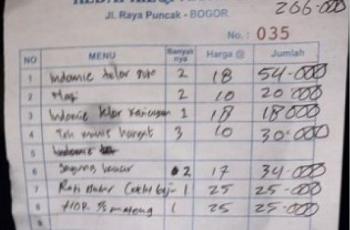 266.000
Jl. Raya Puncak - BOGOR
No. : 035
NO MENU Banyak nya Harga @ Jumlah
1 Indomie telor 2 18 54.000
2 Nasi 2 10 20.000
3 Indomie telor 1 18 18000
4 Teh manis hangat 3 10 30.000
5 Indomie
6 2 17 34.000
7 Roti Bakar 1 25 25.000
8 1/2 mateng 1 25 25.000
9